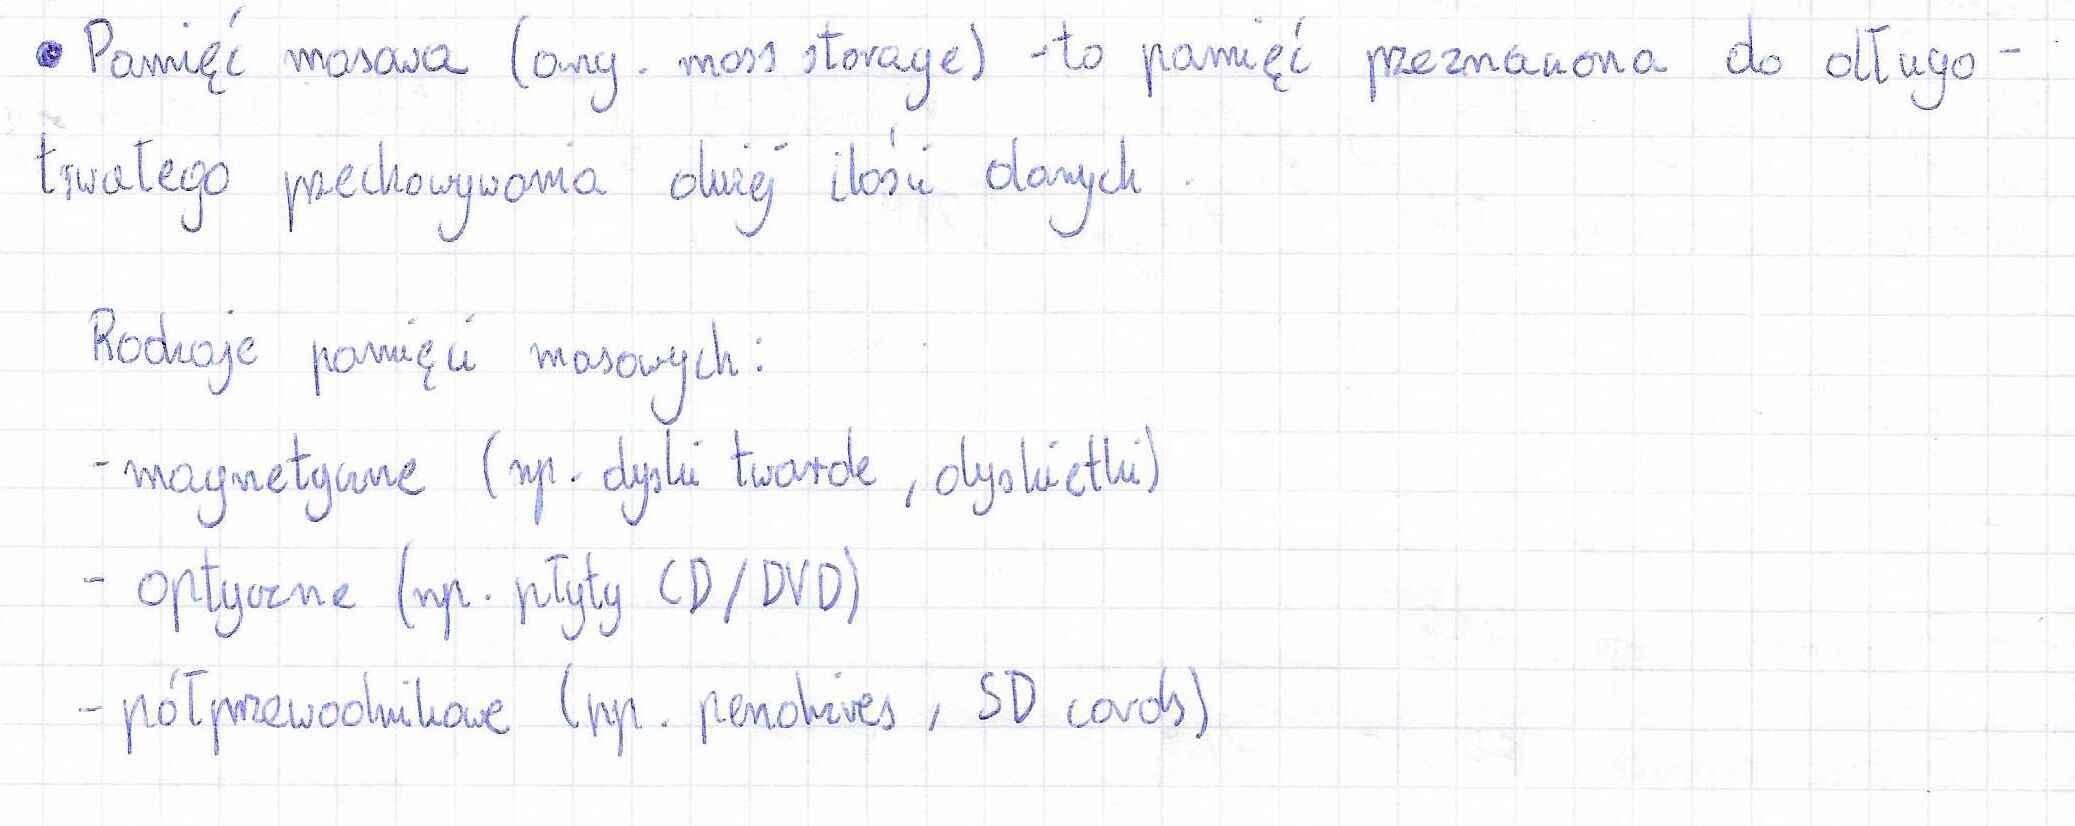 • Pamięć masowa (ang. mass storage) - to pamięć przeznaczona do długo-
trwałego przechowywania dużej ilości danych.
Rodzaje pamięci masowych:
- magnetyczne (np. dyski twarde, dyskietki)
- optyczne (np. płyty CD/DVD)
- półprzewodnikowe (np. pendrives, SD cards)